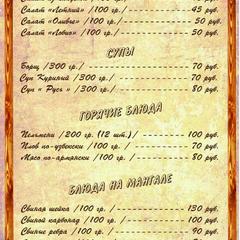 Салат «Летний» /100 гр./ 45 руб.
Салат «Оливье» /100 гр./ 50 руб.
Салат «Лобио» /100 гр./ 50 руб.
СУПЫ
Борщ /300 гр./ 70 руб.
Суп Куриный /300 гр./ 70 руб.
Суп « Русь » /300 гр./ 80 руб.
ГОРЯЧИЕ БЛЮДА
Пельмени /200 гр. (12 шт.)/ 100 руб.
Плов по-узбекски /100 гр./ 70 руб.
Мясо по-армянски /100 гр./ 80 руб.
БЛЮДА НА МАНГАЛЕ
Свиная шейка /100 гр./ 130 руб.
Свиной карбонад /100 гр./ 100 руб.
Свиные ребра /100 гр./ 90 руб.